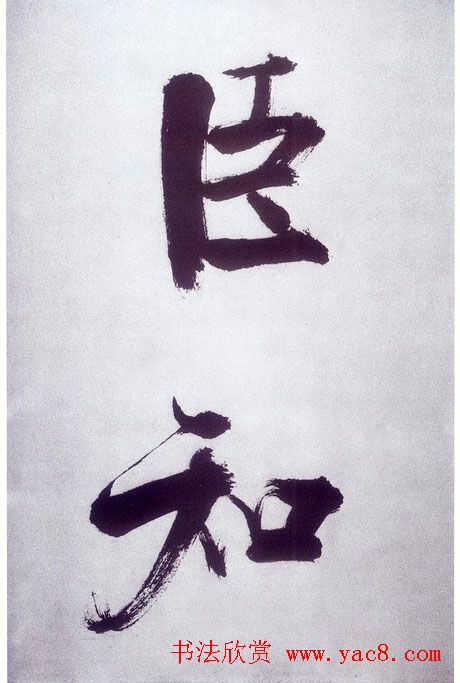 臣
知
书法欣赏 www.yac8.com